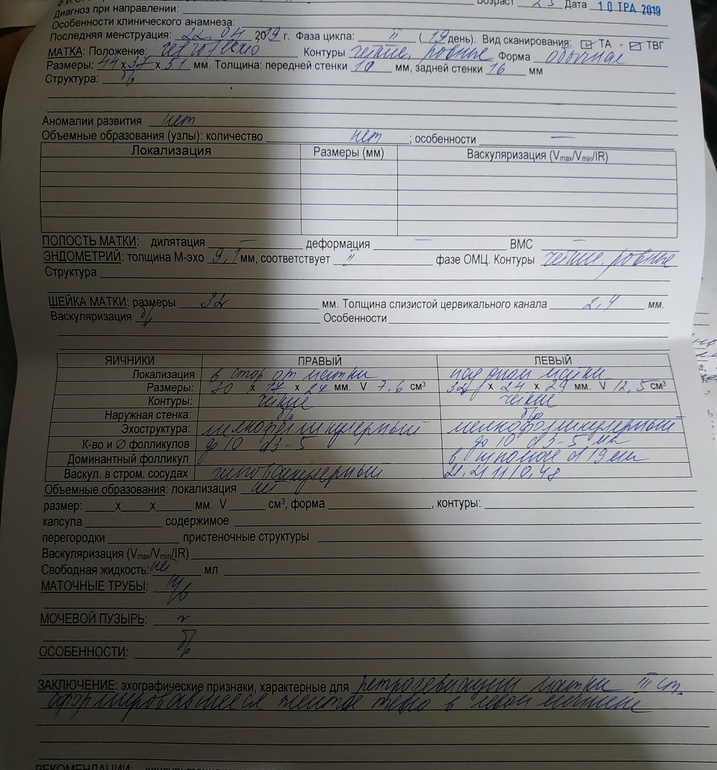 Возраст 23 Дата 10 ТРА 2019
Диагноз при направлении:
Особенности клинического анамнеза:
Последняя менструация: 22.04 2019 г. Фаза цикла: II (19 день). Вид сканирования: ТА - ТВГ
МАТКА: Положение: retroflexio Контуры четкие, ровные Форма обычная
Размеры: 44 х 37 х 51 мм. Толщина: передней стенки мм, задней стенки 16 мм
Структура: б/о
Аномалии развития нет
Объемные образования (узлы): количество нет ; особенности —
Локализация Размеры (мм) Васкуляризация (Vmax/Vmin/IR)
ПОЛОСТЬ МАТКИ: дилятация — деформация — ВМС —
ЭНДОМЕТРИЙ: толщина М-эхо 9,1 мм, соответствует II фазе ОМЦ. Контуры четкие ровные
Структура
ШЕЙКА МАТКИ: размеры 32 мм. Толщина слизистой цервикального канала мм.
Васкуляризация Особенности
ЯИЧНИКИ ПРАВЫЙ ЛЕВЫЙ
Локализация в стор от матки над дном матки
Размеры: 30 х х мм. V 7,6 см³ х 24 х мм. V 12,5 см³
Контуры: четкие четкие
Наружная стенка: б/о б/о
Эхоструктура: мелкофолликулярный мелкофолликулярный
К-во и Ø фолликулов до 10 d 3-5 до 10 d 3-5 мм
Доминантный фолликул
Васкул. в стром. сосудах гиповаскулярный
Объемные образования: локализация нет
размер: х х мм. V см³, форма , контуры:
капсула содержимое
перегородки пристеночные структуры
Васкуляризация (Vmax/Vmin/IR)
Свободная жидкость: нет мл
МАТОЧНЫЕ ТРУБЫ:
МОЧЕВОЙ ПУЗЫРЬ:
ОСОБЕННОСТИ:
ЗАКЛЮЧЕНИЕ: эхографические признаки, характерные для ретродевиации матки III ст.
сформировавшееся желтое тело в левом яичнике
РЕКОМЕНДАЦИИ: